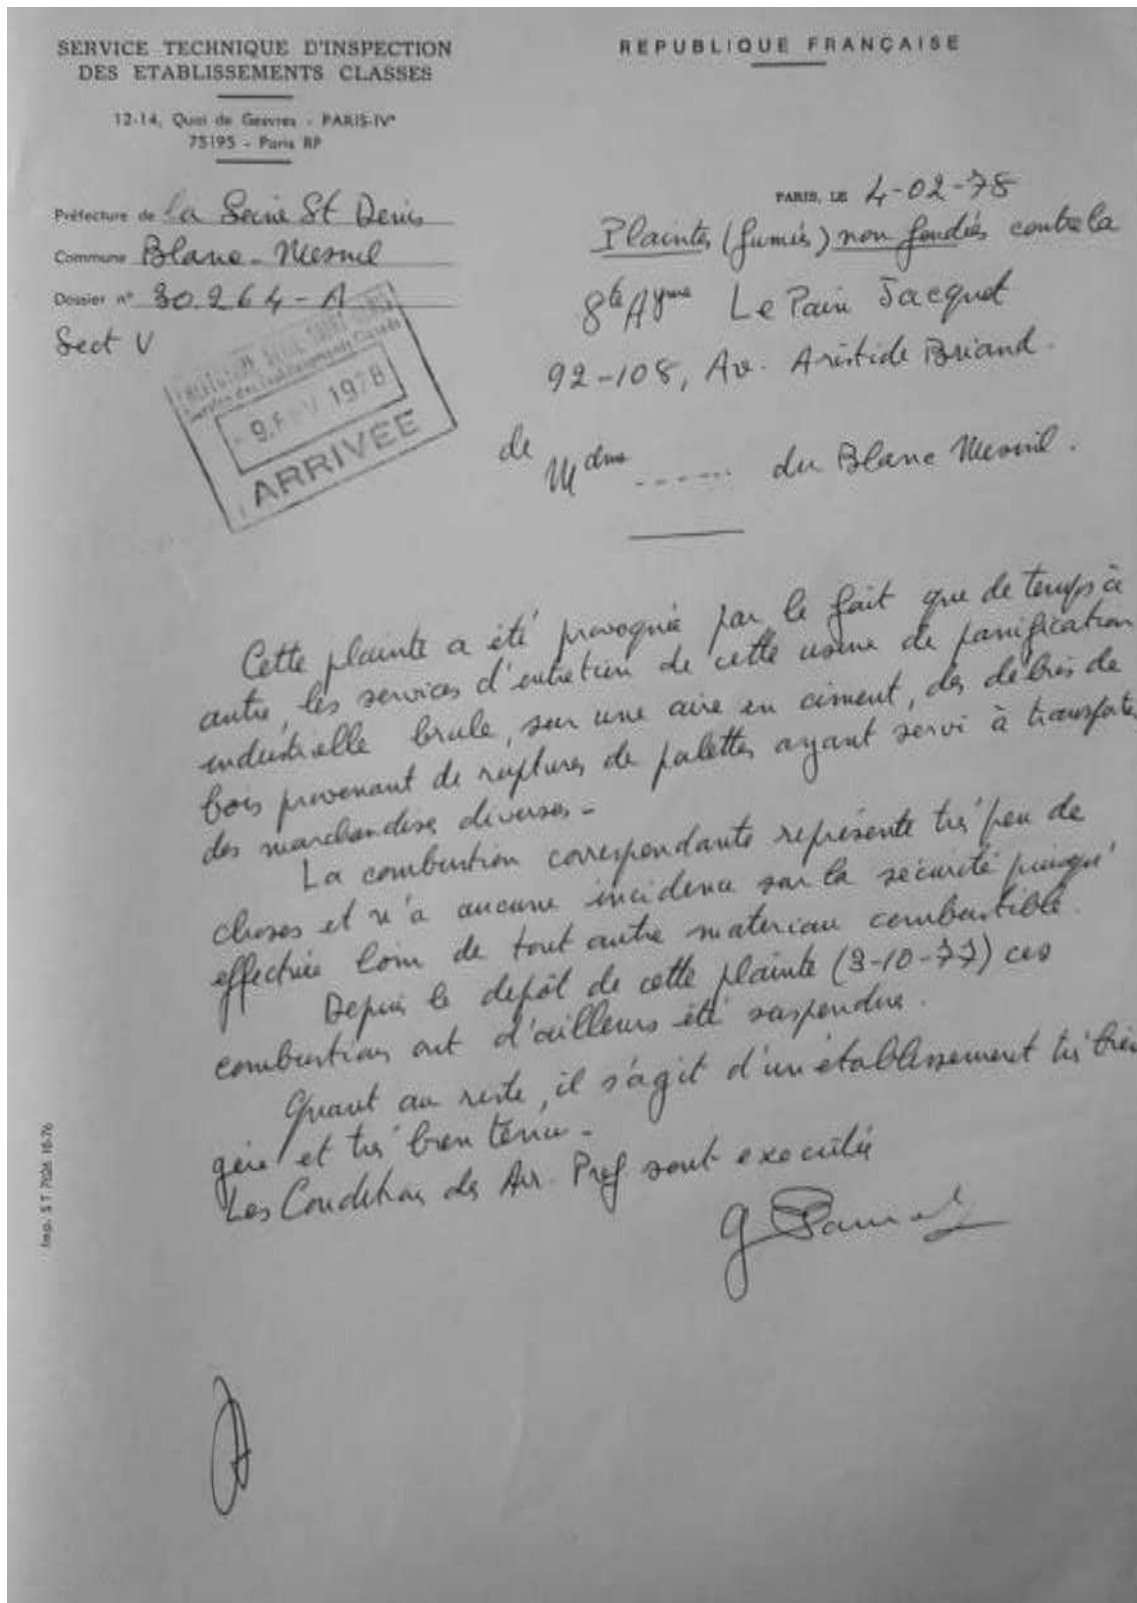 SERVICE TECHNIQUE D'INSPECTION
DES ETABLISSEMENTS CLASSES
12-14, Quai de Gesvres - PARIS-IVe
75195 - Paris RP
REPUBLIQUE FRANÇAISE
Préfecture de la Seine St Denis
Commune Blanc-Mesnil
Dossier n° 30.264-A
Sect V
ARRIVEE
PARIS, LE 4-02-78
Plaintes (fumées) non fondées contre la
Sté Ayme Le Pain Jacquet
92-108, Av. Aristide Briand.
de Mdme ------ du Blanc Mesnil.
Cette plainte a été provoquée par le fait que de temps à
autre, les services d'entretien de cette usine de panification
industrielle brule, sur une aire en ciment, des débris de
bois provenant de ruptures de palettes ayant servi à transporter
des marchandises diverses -
La combustion correspondante représente très peu de
choses et n'a aucune incidence sur la sécurité puisqu'
effectuée loin de tout autre materiau combustible.
Depuis le depôt de cette plainte (3-10-77) ces
combustions ont d'ailleurs été suspendues.
Quant au reste, il s'agit d'un établissement très bien
géré et très bien tenu -
Les Conditions des Arr. Pref sont executées
Imp. S T 7026 10-76